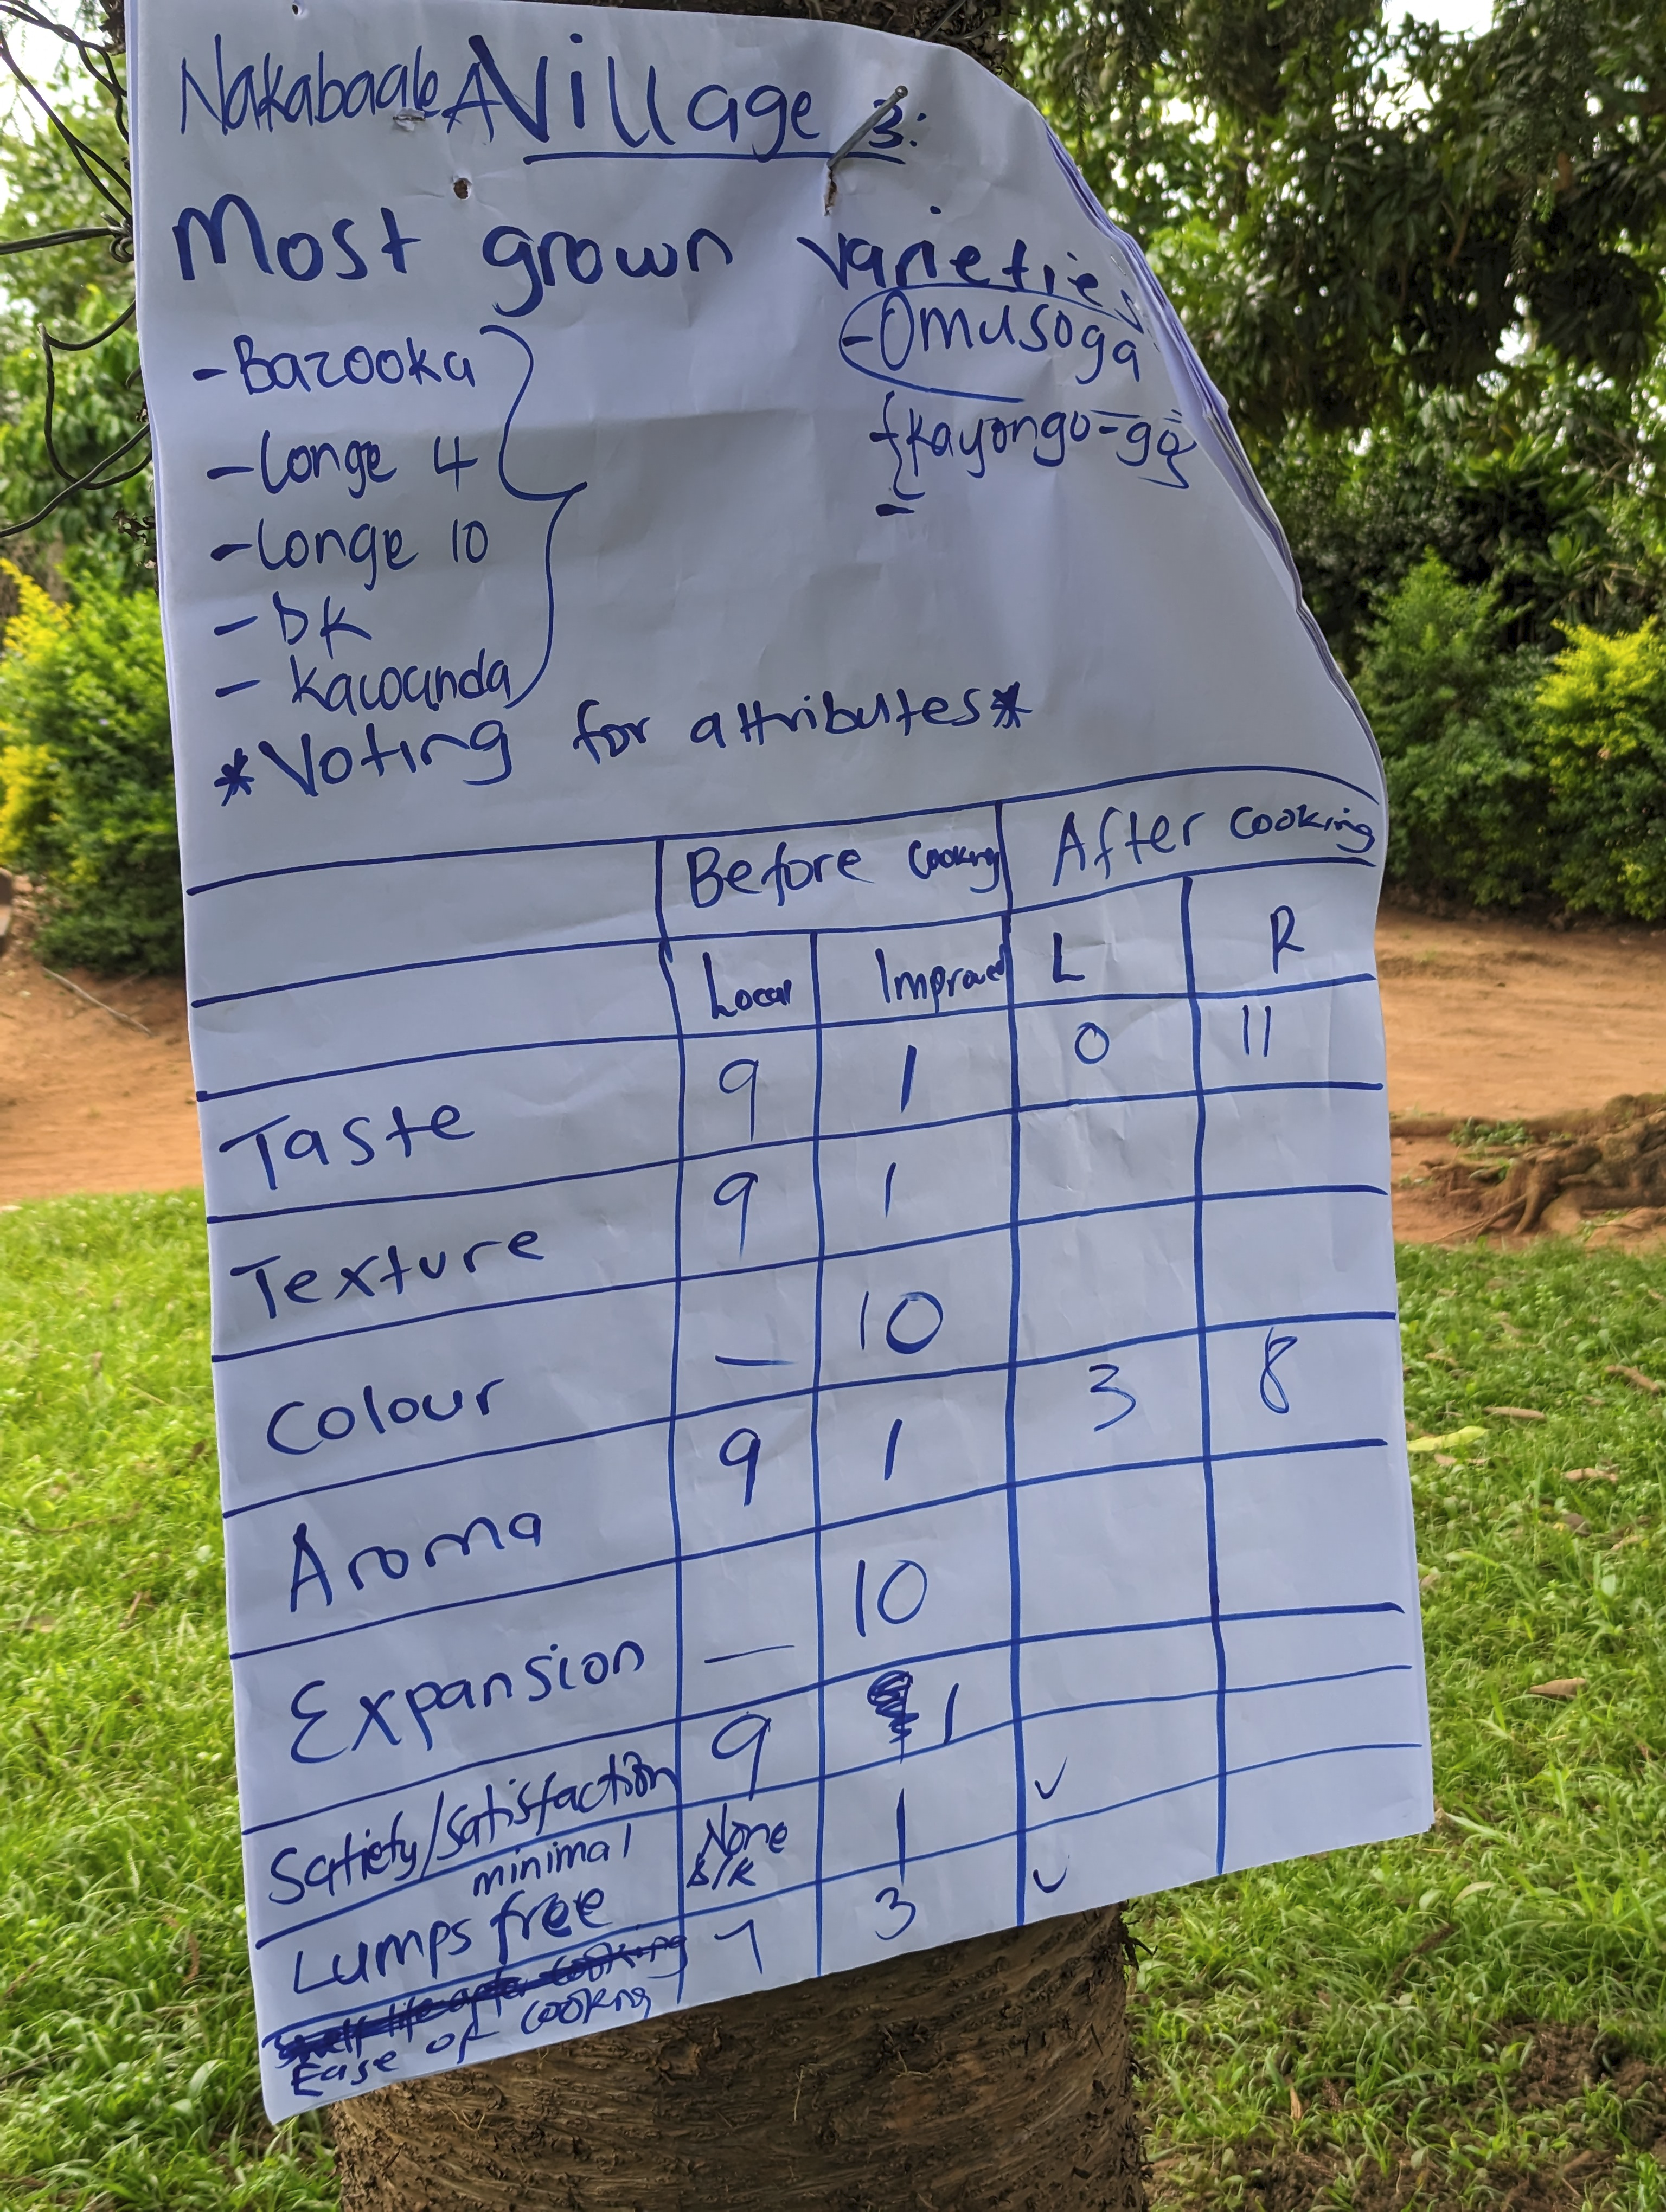 Nakabaale A Village 3:
Most grown varieties
- Bazooka
- Longe 4
- Longe 10
- DK
- Kawanda
- Omusoga
- Kayongo-go
*Voting for attributes*
Before cooking After cooking
Local Improved L R
Taste 9 1 0 11
Texture 9 1
Colour — 10
Aroma 9 1 3 8
Expansion — 10
Satiety/satisfaction 9 1
minimal
Lumps free None 1 ✓
Shelf life after cooking
Ease of cooking 7 3 ✓